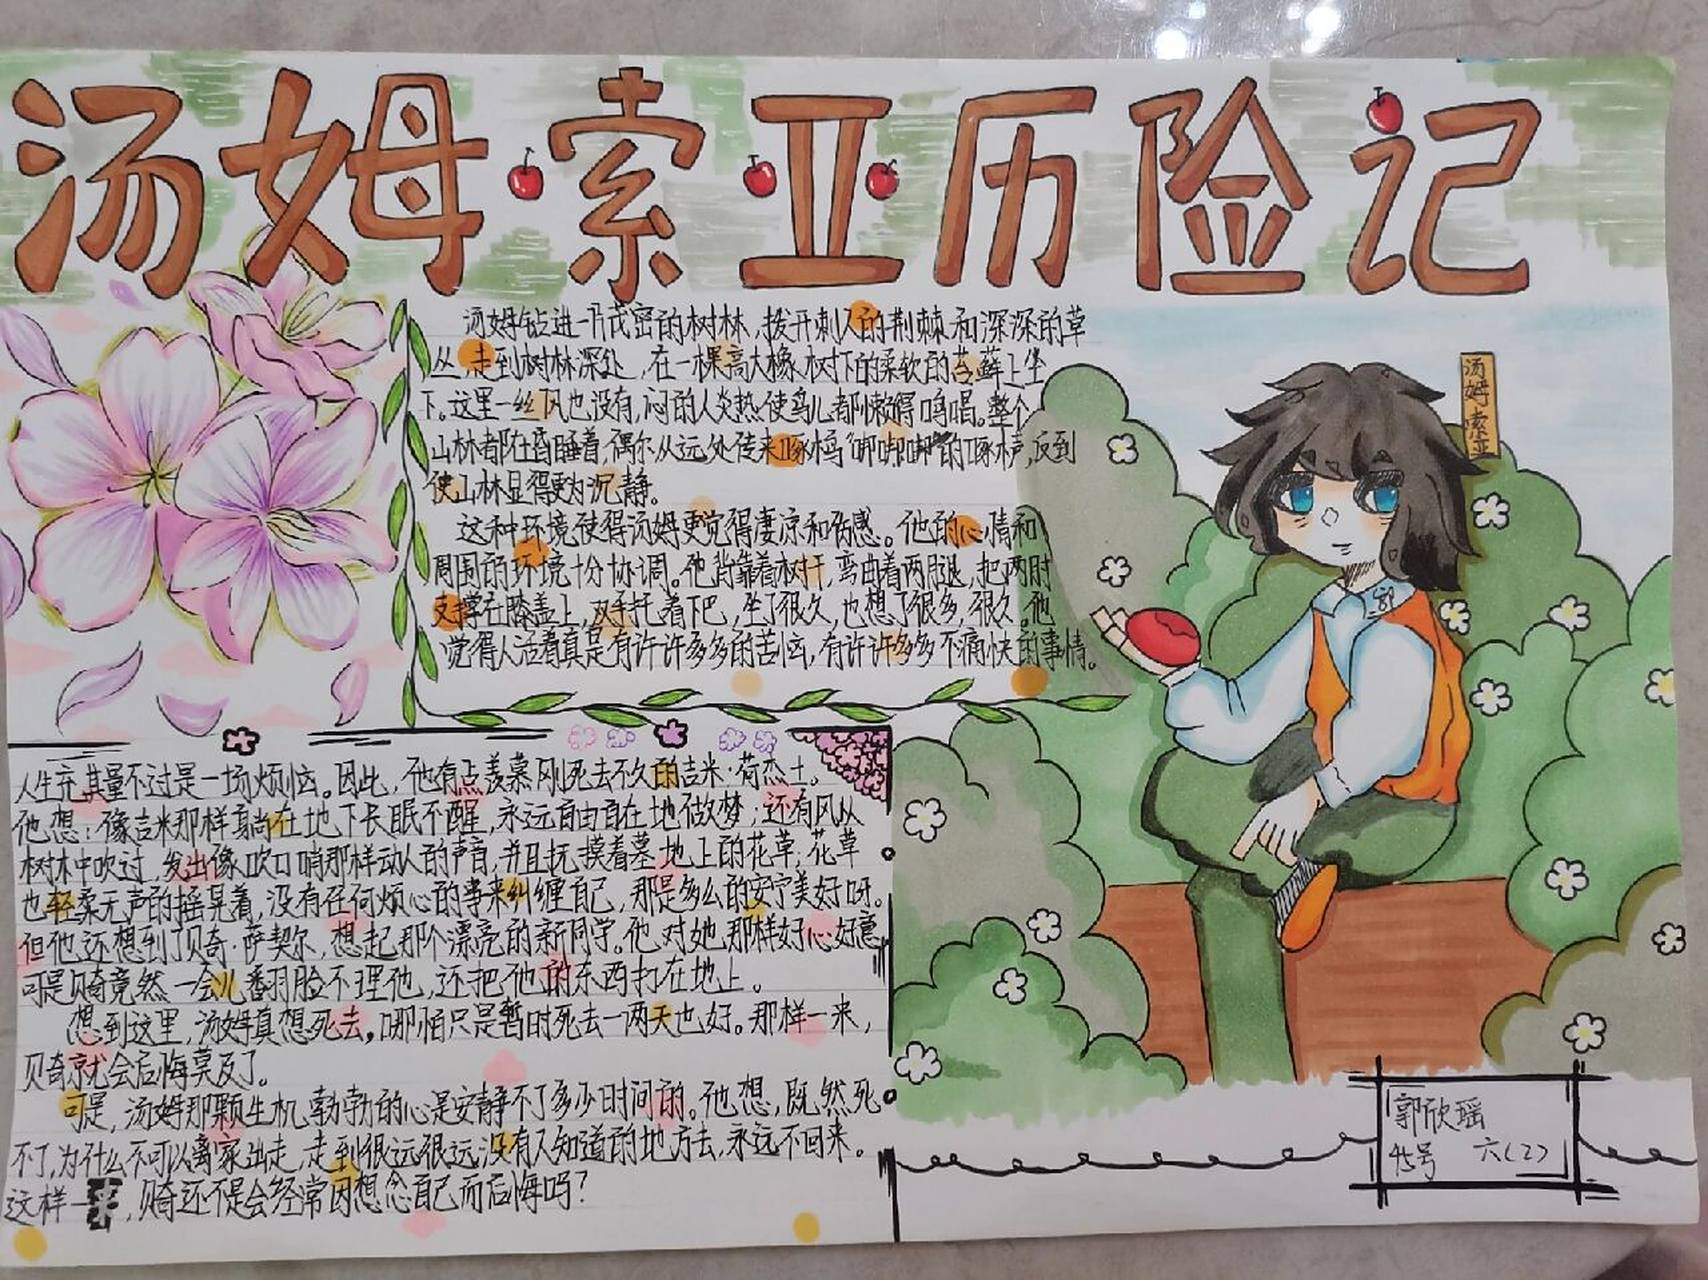 汤姆·索亚历险记
汤姆钻进一片茂密的树林,拨开刺人的荆棘和深深的草
丛,走到树林深处,在一棵高大橡树下的柔软的苔藓上坐
下。这里一丝风也没有,闷的人炎热使鸟儿都懒得鸣唱。整个
山林都在昏睡着,偶尔从远处传来啄木鸟“唧唧唧”的啄木声,反到
使山林显得更为沉静。
这种环境使得汤姆更觉得凄凉和伤感。他的心情和
周围的环境十分协调。他背靠着树干,弯曲着两腿,把两肘
支撑在膝盖上,双手托着下巴,坐了很久,也想了很多,很久。他
觉得人活着真是有许许多多的苦恼,有许许多多不痛快的事情。
汤姆索亚
人生充其量不过是一场烦恼。因此,他有点羡慕刚死去不久的吉米·荷杰士。
他想:像吉米那样躺在地下长眠不醒,永远自由自在地做梦;还有风从
树林中吹过,发出像吹口哨那样动人的声音,并且抚摸着墓地上的花草;花草
也轻柔无声的摇晃着,没有任何烦心的事来纠缠自己,那是多么的安宁美好呀。
但他还想到了贝奇·萨契尔,想起那个漂亮的新同学。他对她那样好心好意
可是贝奇竟然一会儿翻脸不理他,还把他的东西打在地上。
想到这里,汤姆真想死去,哪怕只是暂时死去一两天也好。那样一来,
贝奇就会后悔莫及了。
可是,汤姆那颗生机勃勃的心是安静不了多少时间的。他想,既然死
不了,为什么不可以离家出走,走到很远很远没有人知道的地方去,永远不回来。
这样一来,贝奇还不是会经常因想念自己而后悔吗?
郭欣瑶
45号 六(2)